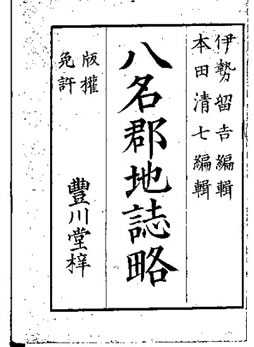 伊勢留吉編輯
本田清七編輯
八名郡地誌略
版權
免許
豐川堂梓